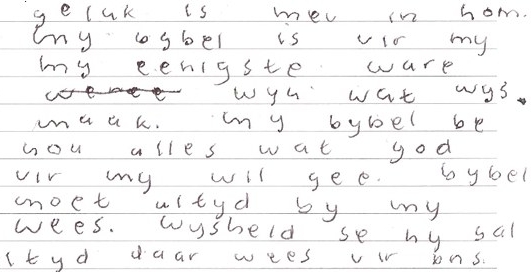 geluk is mev in hom.
my bybel is vir my
my eenigste ware
wyn wat wys.
maak. my bybel be
hou alles wat god
vir my wil gee. bybel
moet altyd by my
wees. wysheid se hy sal
ityd daar wees vir ons.